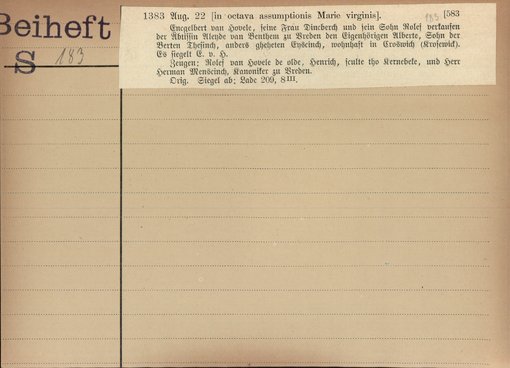 Beiheft
S 183
1383 Aug. 22 [in octava assumptionis Marie virginis]. 183 [583
Engelbert van Hovele, seine Frau Dineberch und sein Sohn Rolef verkaufen
der Äbtissin Aleyde van Benthem zu Vreden den Eigenhörigen Alberte, Sohn der
Berten Thesinch, anders gheheten Eysinch, wohnhaft in Croswich (Krosewick).
Es siegelt E. v. H.
Zeugen: Rolef van Hovele de olde, Henrich, sculte tho Kernebeke, und Herr
Herman Mensinch, Kanoniker zu Vreden.
Orig. Siegel ab; Lade 209, 8 III.